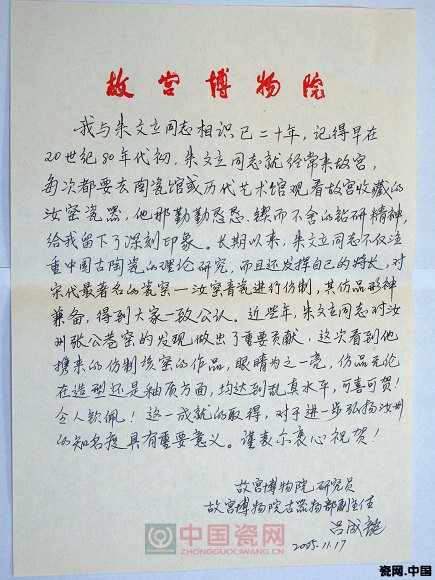 故宫博物院
我与朱文立同志相识已二十年，记得早在
20世纪80年代初，朱文立同志就经常来故宫，
每次都要去陶瓷馆或历代艺术馆观看故宫收藏的
汝窑瓷器，他那勤勤恳恳、锲而不舍的钻研精神，
给我留下了深刻印象。长期以来，朱文立同志不仅注
重中国古陶瓷的理论研究，而且还发挥自己的特长，对
宋代最著名的瓷窑—汝窑青瓷进行仿制，其仿品形神
兼备，得到大家一致公认。近些年，朱文立同志对汝
州张公巷窑的发现做出了重要贡献，这次看到他
携来的仿制该窑的作品，眼睛为之一亮，仿品无论
在造型还是釉质方面，均达到乱真水平，可喜可贺！
令人钦佩！这一成就的取得，对于进一步弘扬汝州
的知名度具有重要意义。谨表示衷心祝贺！
故宫博物院研究员
故宫博物院古器物部副主任
吕成龙
2005.11.17
中国瓷网
ZHONGGUOCIWANG.CN
瓷网.中国